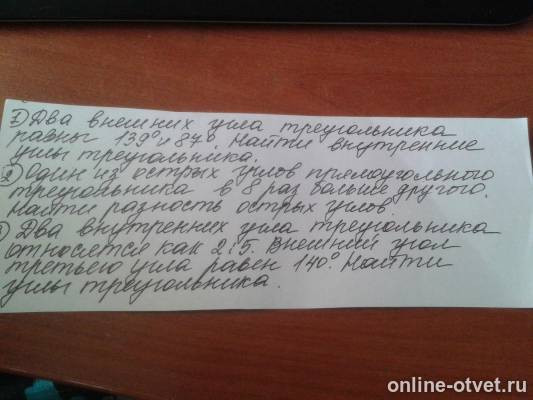 1) Два внешних угла треугольника
равны 139° и 87°. Найти внутренние
углы треугольника.
2) Один из острых углов прямоугольного
треугольника в 8 раз больше другого.
Найти разность острых углов.
3) Два внутренних угла треугольника
относятся как 2:5. Внешний угол
третьего угла равен 140°. Найти
углы треугольника.
online-otvet.ru